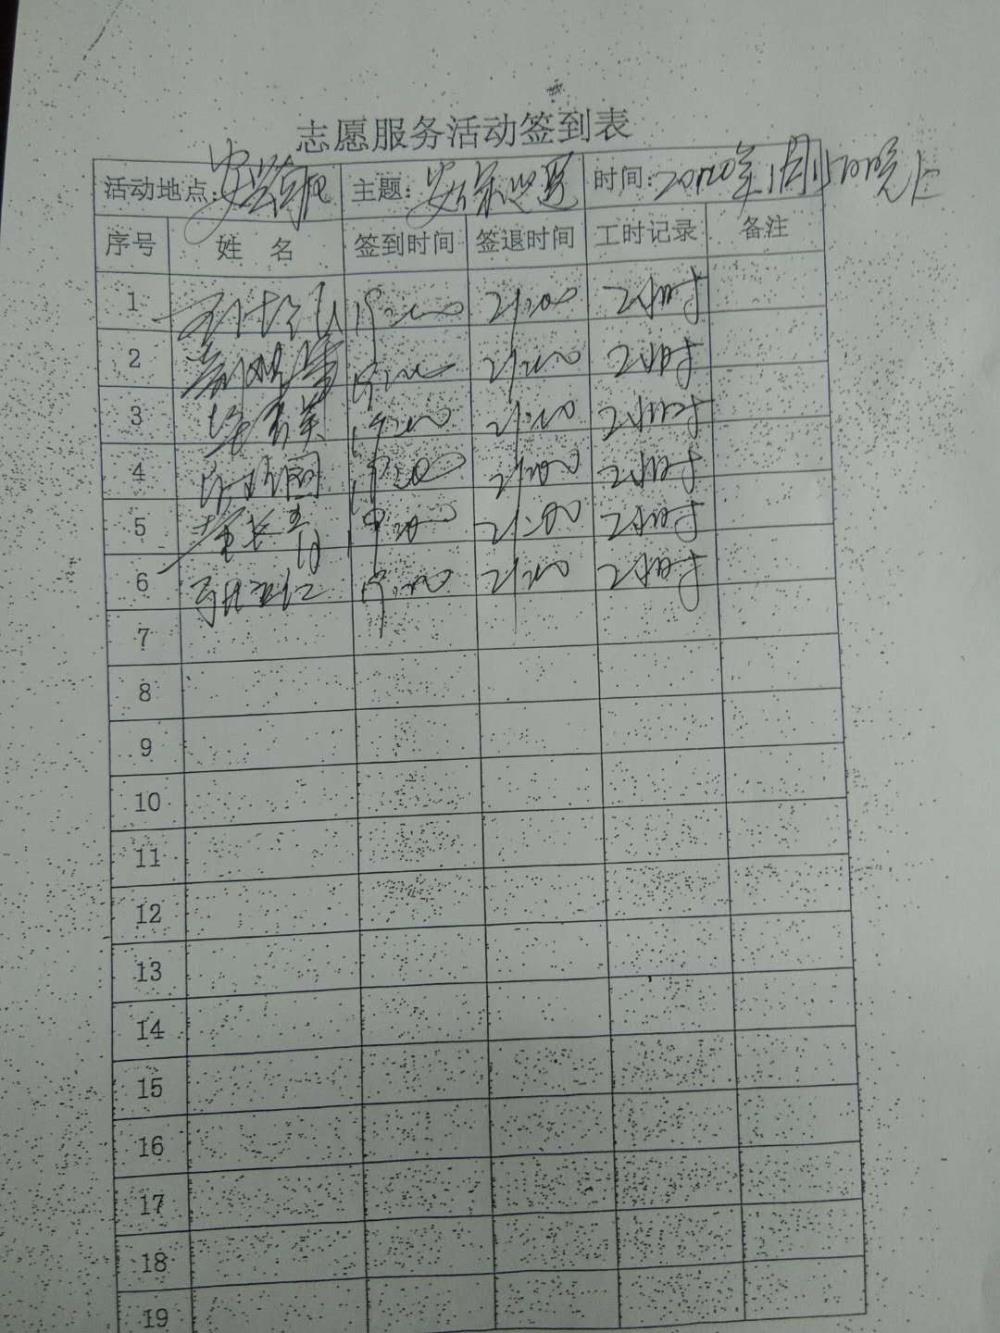 志愿服务活动签到表
活动地点: 主题: 时间: 2020年1月15日晚上
序号 姓 名 签到时间 签退时间 工时记录 备注
1 19:00 21:00 2小时
2 19:00 21:00 2小时
3 19:00 21:00 2小时
4 19:00 21:00 2小时
5 19:00 21:00 2小时
6 19:00 21:00 2小时
7
8
9
10
11
12
13
14
15
16
17
18
19